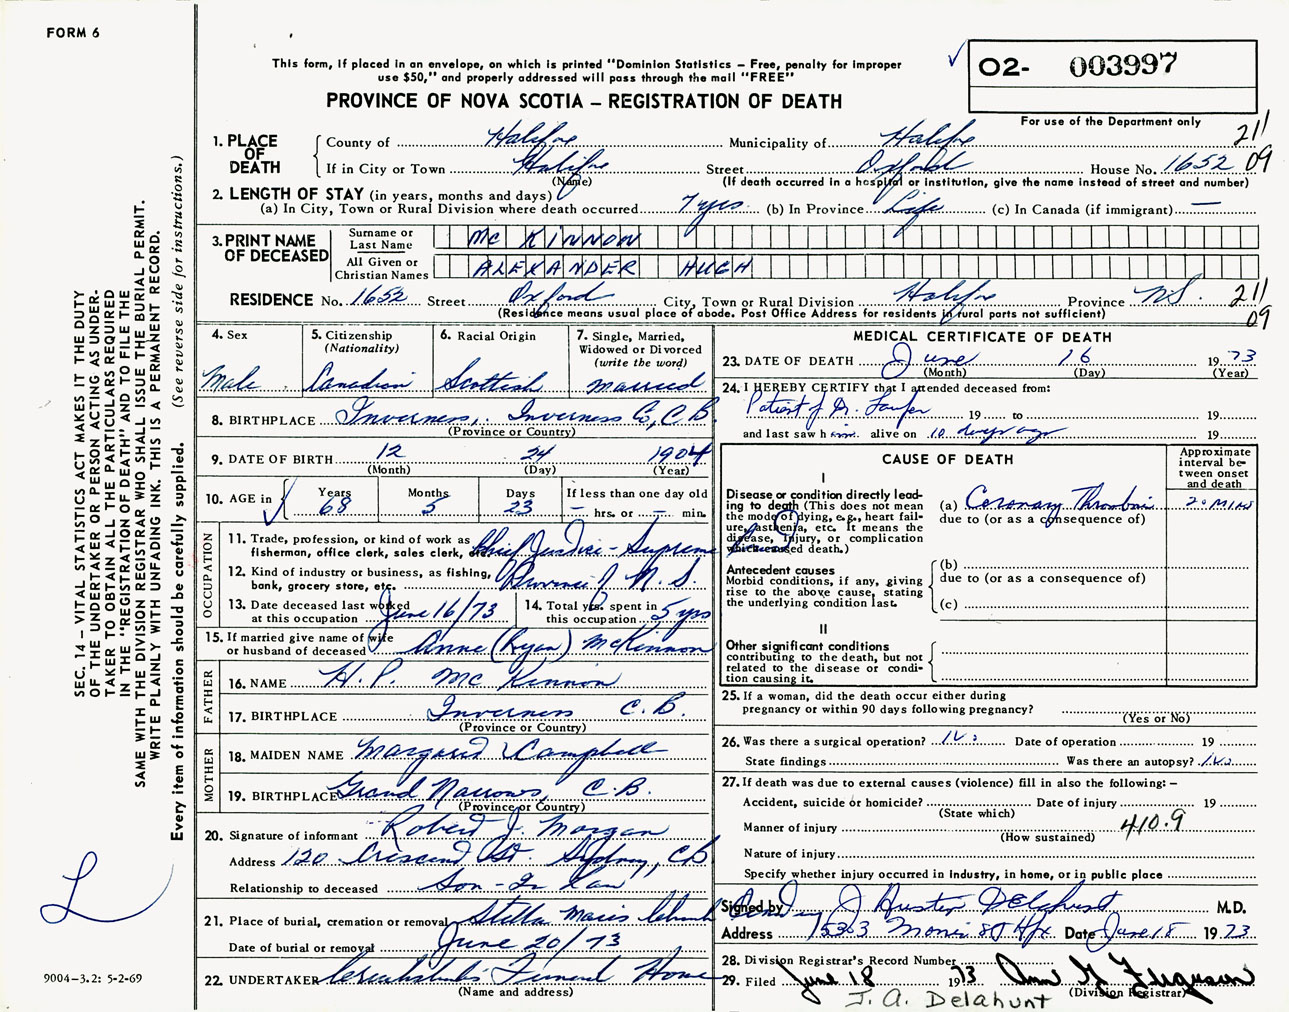 FORM 6
This form, if placed in an envelope, on which is printed "Dominion Statistics – Free, penalty for improper
use $50," and properly addressed will pass through the mail "FREE"
PROVINCE OF NOVA SCOTIA – REGISTRATION OF DEATH
02- 003997
For use of the Department only
211
09
1. PLACE OF DEATH
County of Halifax Municipality of Halifax
If in City or Town Halifax Street Oxford House No. 1652
(Name) (If death occurred in a hospital or institution, give the name instead of street and number)
2. LENGTH OF STAY (in years, months and days)
(a) In City, Town or Rural Division where death occurred 7 yrs. (b) In Province Life (c) In Canada (if immigrant) —
3. PRINT NAME OF DECEASED
Surname or Last Name MC KINNON
All Given or Christian Names ALEXANDER HUGH
RESIDENCE No. 1652 Street Oxford City, Town or Rural Division Halifax Province N.S.
(Residence means usual place of abode. Post Office Address for residents in rural parts not sufficient)
211
09
4. Sex Male
5. Citizenship (Nationality) Canadian
6. Racial Origin Scottish
7. Single, Married, Widowed or Divorced (write the word) Married
8. BIRTHPLACE Inverness, Inverness Co, C.B.
(Province or Country)
9. DATE OF BIRTH 12 24 1904
(Month) (Day) (Year)
10. AGE in Years 68 Months 5 Days 23 If less than one day old – hrs. or – min.
OCCUPATION
11. Trade, profession, or kind of work as fisherman, office clerk, sales clerk, etc. Chief Justice - Supreme
12. Kind of industry or business, as fishing, bank, grocery store, etc. Province of N.S.
13. Date deceased last worked at this occupation June 16/73
14. Total yrs. spent in this occupation 5 yrs
15. If married give name of wife or husband of deceased Anne (Ryan) McKinnon
FATHER
16. NAME H. P. McKinnon
17. BIRTHPLACE Inverness C.B.
(Province or Country)
MOTHER
18. MAIDEN NAME Margaret Campbell
19. BIRTHPLACE Grand Narrows, C.B.
(Province or Country)
20. Signature of informant Robert J. Morgan
Address 120 Crescent St. Sydney, CB
Relationship to deceased Son-In Law
21. Place of burial, cremation or removal Stella Maris Church
Date of burial or removal June 20/73
22. UNDERTAKER Funeral Home
(Name and address)
MEDICAL CERTIFICATE OF DEATH
23. DATE OF DEATH June 16 1973
(Month) (Day) (Year)
24. I HEREBY CERTIFY that I attended deceased from:
Patient of Dr. 19 to 19
and last saw him alive on 10 days ago 19
CAUSE OF DEATH
Approximate interval between onset and death
I
Disease or condition directly leading to death (This does not mean the mode of dying, e.g., heart failure, asthenia, etc. It means the disease, injury, or complication which caused death.)
(a) Coronary Thrombosis 20 MINS
due to (or as a consequence of)
Antecedent causes
Morbid conditions, if any, giving rise to the above cause, stating the underlying condition last.
(b)
due to (or as a consequence of)
(c)
II
Other significant conditions
contributing to the death, but not related to the disease or condition causing it.
25. If a woman, did the death occur either during
pregnancy or within 90 days following pregnancy?
(Yes or No)
26. Was there a surgical operation? No Date of operation 19
State findings Was there an autopsy? No
27. If death was due to external causes (violence) fill in also the following: –
Accident, suicide or homicide? Date of injury 19
(State which)
Manner of injury 410.9
(How sustained)
Nature of injury
Specify whether injury occurred in industry, in home, or in public place
Signed by J Delahunt M.D.
Address Hfx Date June 18 1973
28. Division Registrar's Record Number
29. Filed June 18 1973 Ann G Ferguson
(Division Registrar)
J. A. Delahunt
SEC. 14 – VITAL STATISTICS ACT MAKES IT THE DUTY
OF THE UNDERTAKER OR PERSON ACTING AS UNDER-
TAKER TO OBTAIN ALL THE PARTICULARS REQUIRED
IN THE "REGISTRATION OF DEATH" AND TO FILE THE
SAME WITH THE DIVISION REGISTRAR WHO SHALL ISSUE THE BURIAL PERMIT.
WRITE PLAINLY WITH UNFADING INK. THIS IS A PERMANENT RECORD.
Every item of information should be carefully supplied. (See reverse side for instructions.)
L
9004–3.2: 5-2-69